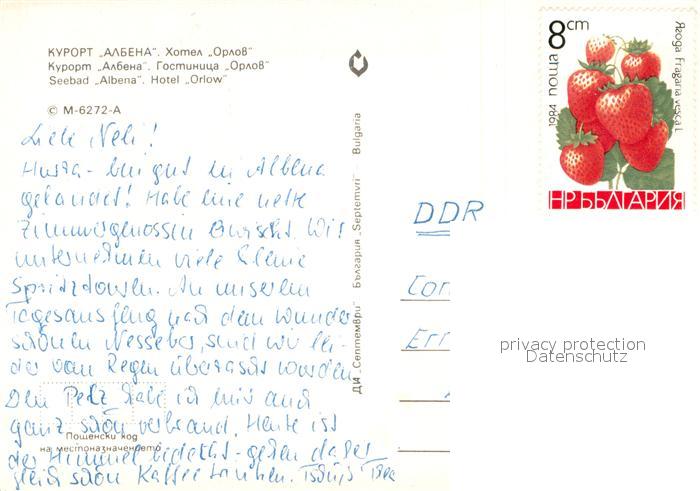 КУРОРТ „АЛБЕНА". Хотел „Орлов"
Курорт „Албена". Гостиница „Орлов"
Seebad „Albena", Hotel „Orlow"
© М-6272-А
Liebe Neli!
Hurra - bin gut in Albena
gelandet! Habe eine nette
Zimmergenossin erwischt. Wir
unternehmen viele kleine
Spritztouren. An unserem
Tagesausflug nach dem wunder
schönen Nessebar, sind wir lei-
der vom Regen überrascht worden.
Den Pelz habe ich mir auch
ganz schön verbrannt. Heute ist
der Himmel bedeckt - gehen daher
gleich schön Kaffee trinken. Tschüß
Пощенски код
на местоназначението
ДИ „Септември" България „Septemvri" Bulgaria
8 cm
1984 ПОЩА
Ягода Fragaria vesca L.
НР БЪЛГАРИЯ
DDR
privacy protection
Datenschutz